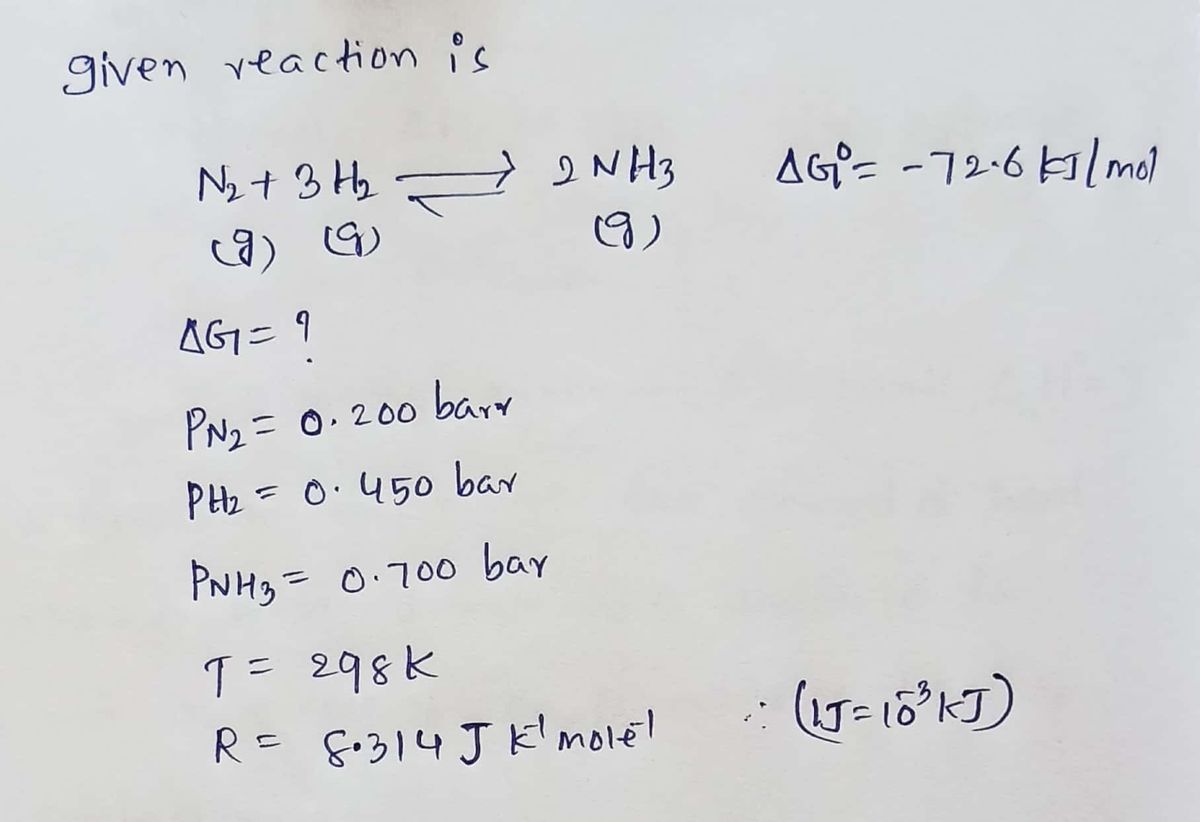 given reaction is
N₂ + 3 H₂ ⇌ 2 NH₃ ΔG°= -72.6 kJ/mol
(g) (g) (g)
ΔG = ?
PN₂ = 0.200 barr
PH₂ = 0.450 bar
PNH₃ = 0.700 bar
T = 298K
R = 8.314 J K⁻¹ mole⁻¹ ∴ (1J=10⁻³ kJ)